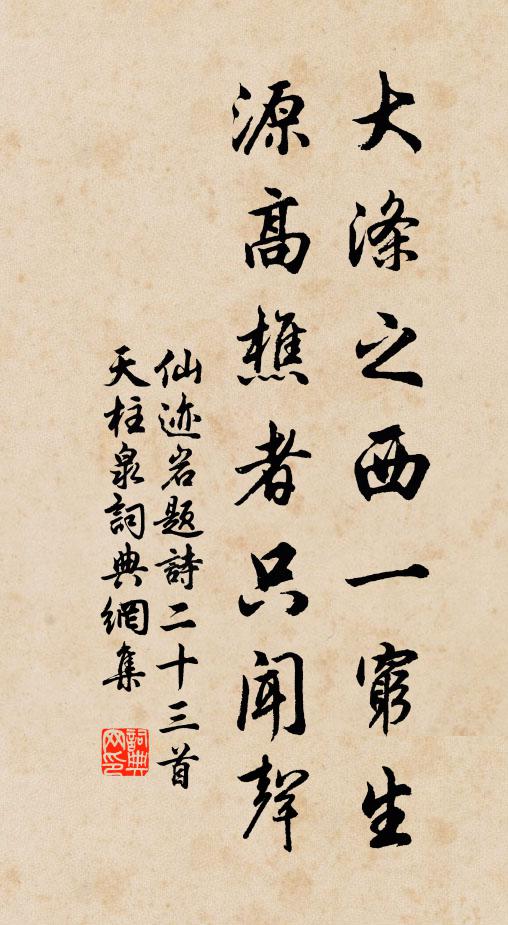 大滌之西一窮生
源高樵者只聞聲
仙迹岩題詩二十三首
天柱泉詞典網集
詞典網印